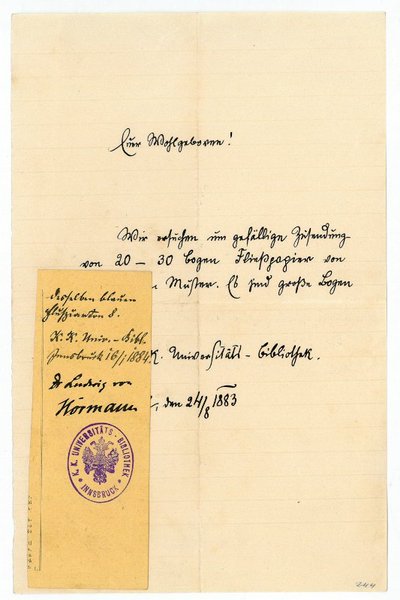 Euer Wohlgeboren!
Wir ersuchen um gefällige Zusendung
von 20 – 30 Bogen Fließpapier von
Muster. Es sind große Bogen
K. Universitäts - Bibliothek.
, den 24/8 1883
desselben blauen
K. K. Univ. - Bibl.
Innsbruck 16/1 1884.
Dr Ludwig von
Hörmann
K. K. UNIVERSITÄTS - BIBLIOTHEK
INNSBRUCK
244